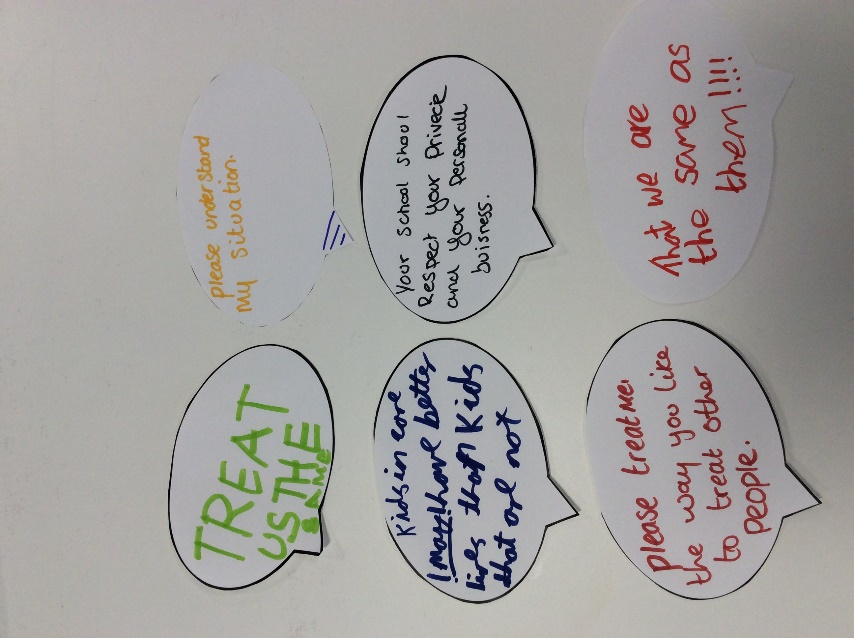 TREAT
US THE
SAME
please understand
my situation.
Kids in care
may have better
lives than Kids
that are not
Your school shoul
Respect your privecie
and your personall
buisness.
please treat me
the way you like
to treat other
people.
That we are
the same as
them!!!!